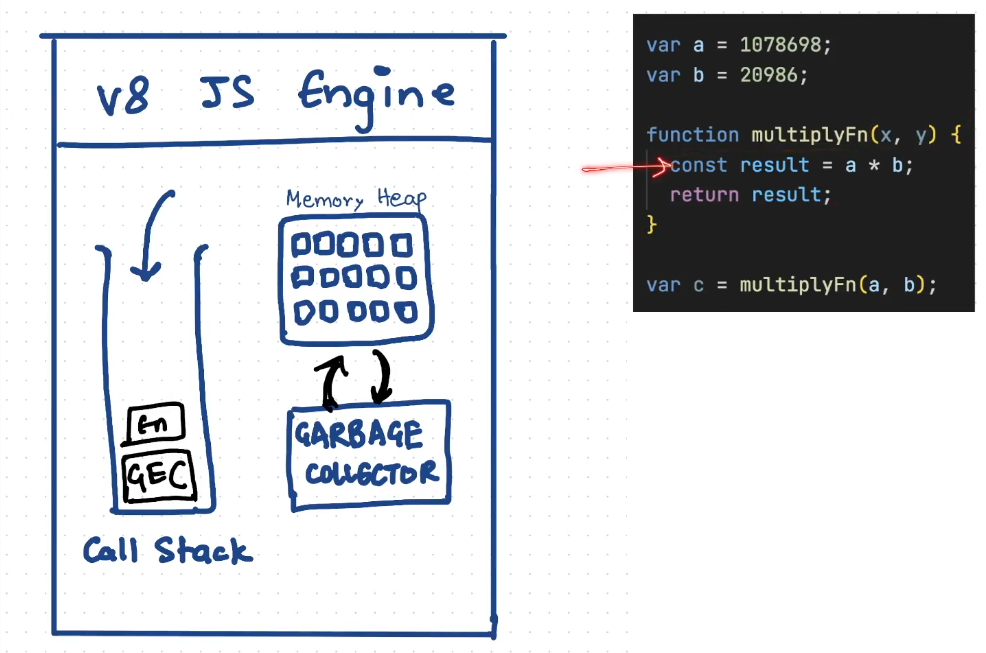 V8 JS Engine
Memory Heap
fn
GEC
Call Stack
GARBAGE
COLLECTOR
var a = 1078698;
var b = 20986;
function multiplyFn(x, y) {
const result = a * b;
return result;
}
var c = multiplyFn(a, b);